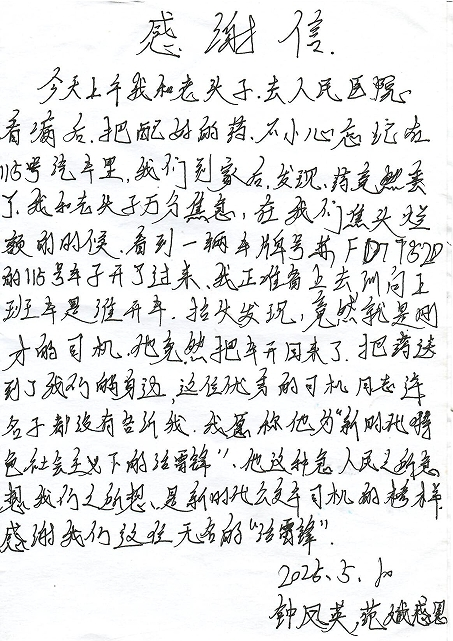 感谢信
今天上午我和老头子.去人民医院
看病后.把配好的药.不小心忘记在
115号汽车里,我们到家后.发现.药竟然丢
了.我和老头子万分焦急,在我们焦头烂
额的时候.看到一辆车牌号苏FD
的115号车子开了过来、我正准备上去询问上
班车是谁开车.抬头发现,竟然就是刚
才的司机.他竟然把车开回来了.把药送
到了我们的身边,这位优秀的司机同志连
名子都没有告诉我.我愿称他为"新时代特
色社会主义下的活雷锋".他这种急人民之所急
想我们之所想、是新时代公交车司机的榜样.
感谢我们这位无名的"活雷锋".
2025.5.
钟凤英,范斌感恩